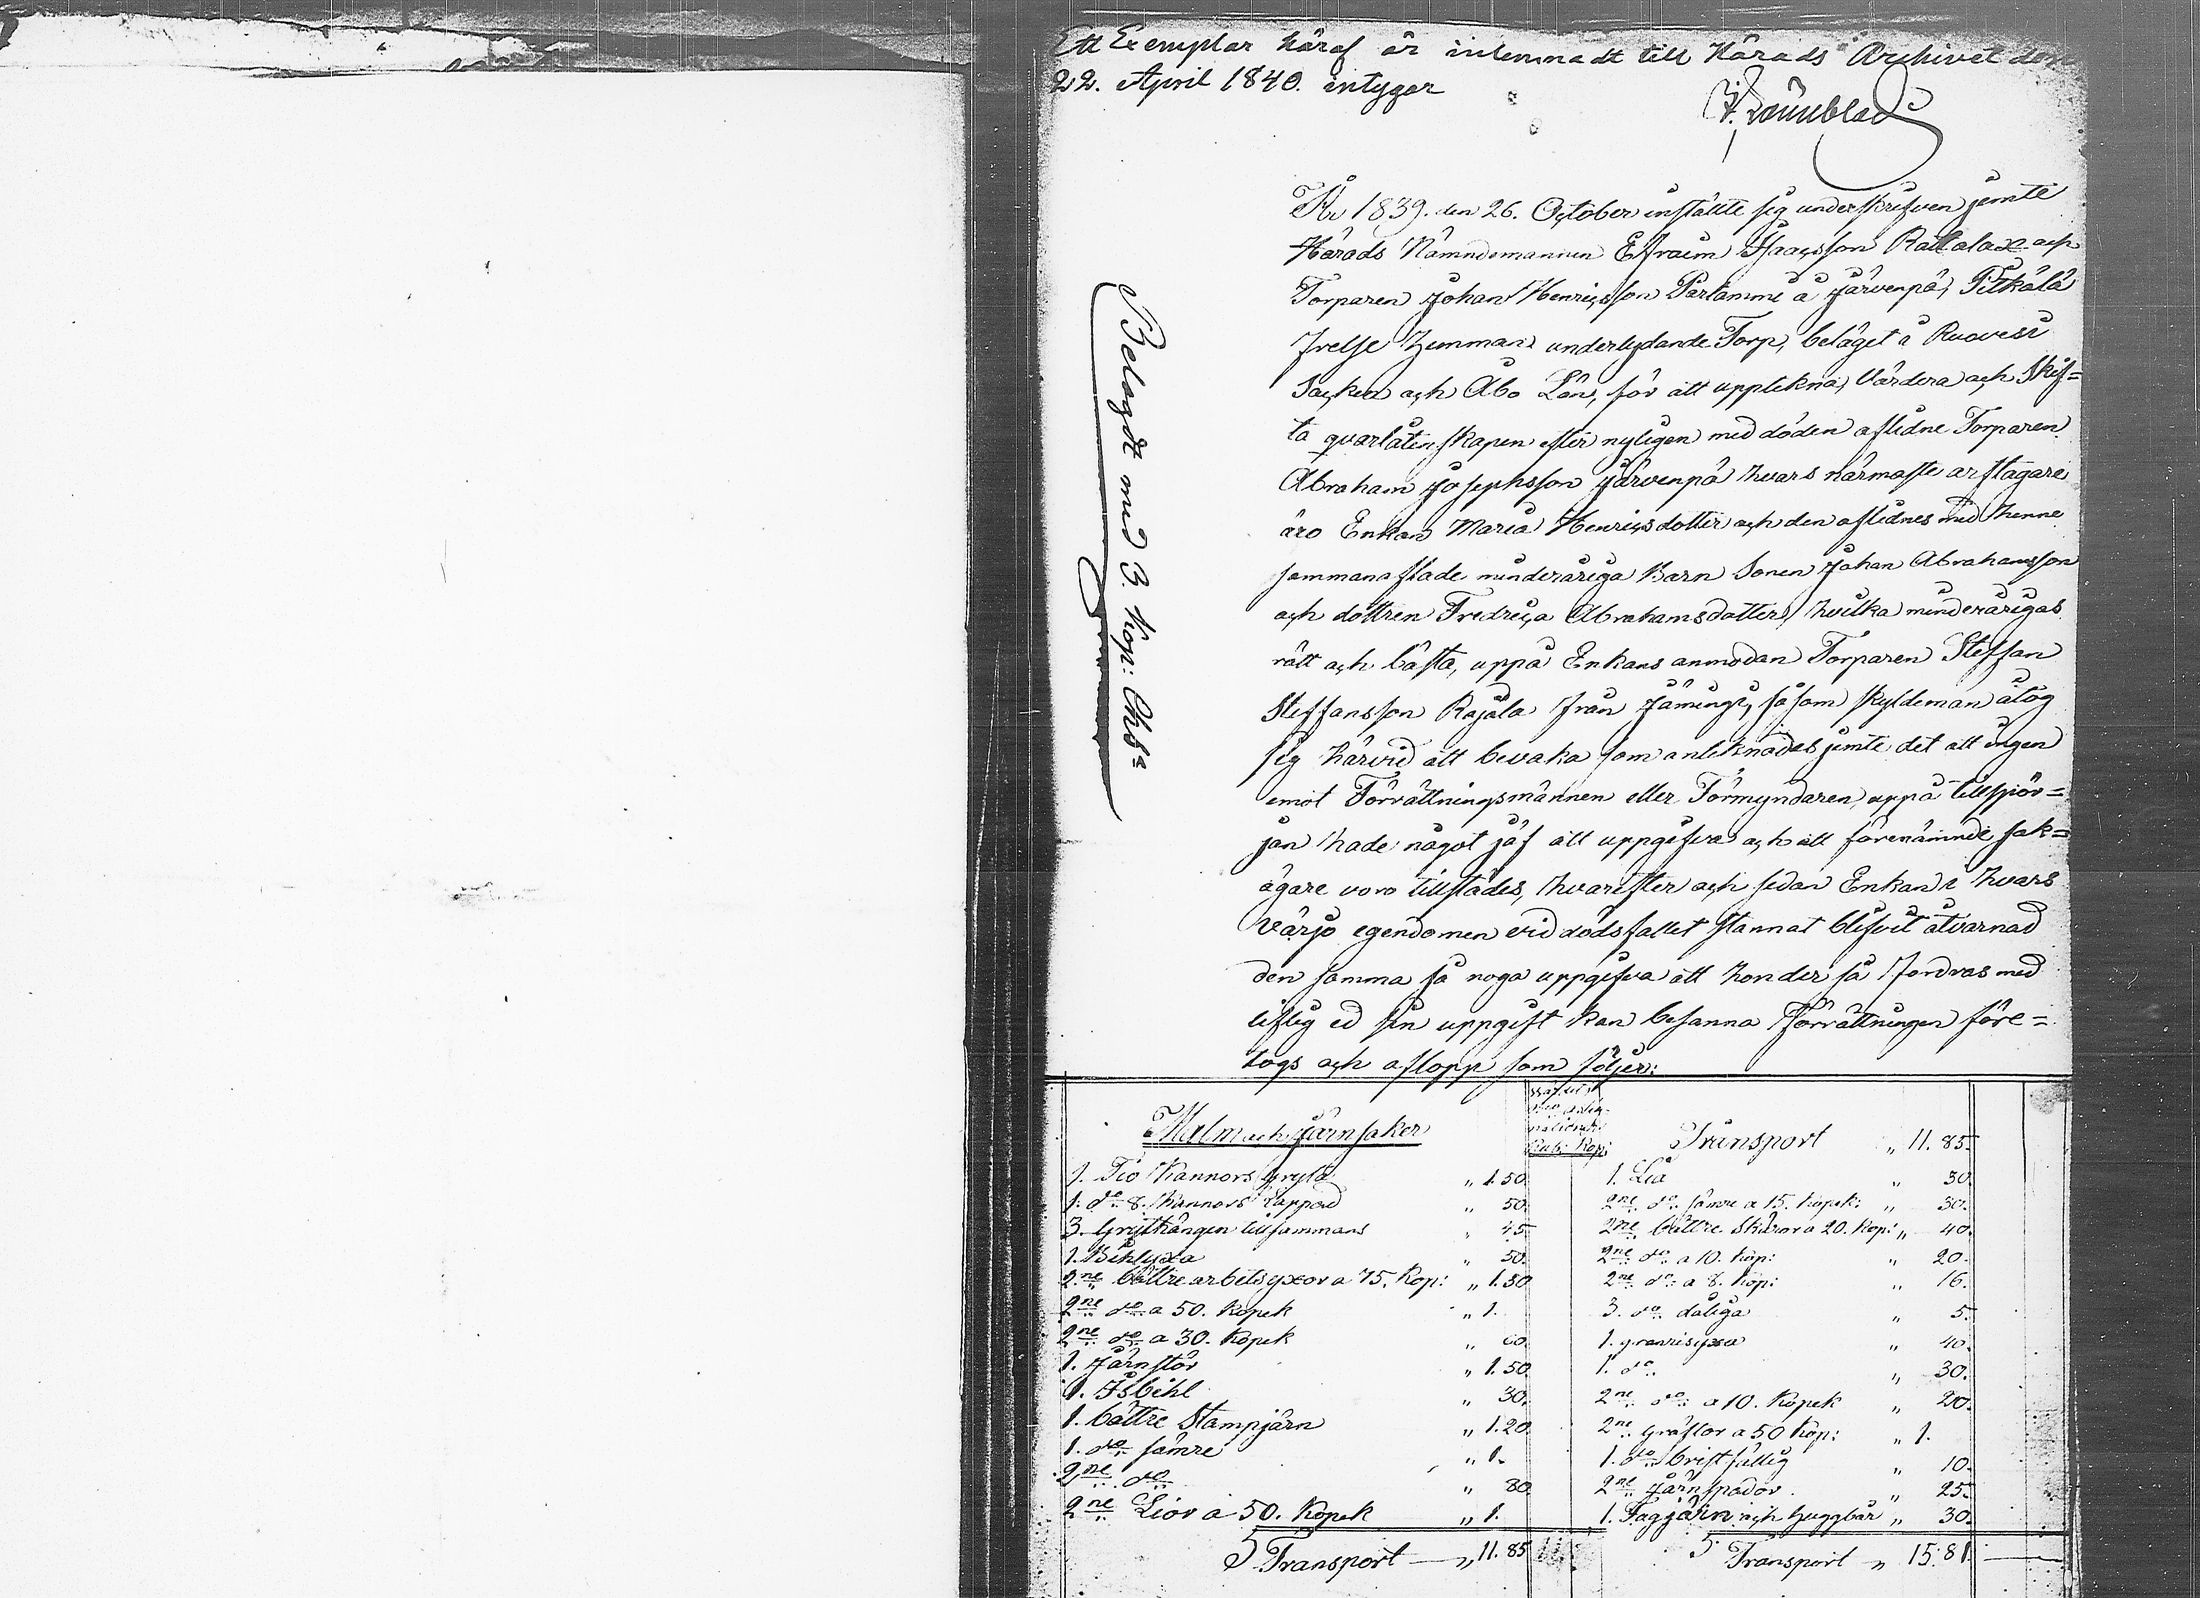 Ett Exemplar häraf är inlemnadt till Härads Archivet den
22. April 1840. intygar
Belagdt med 3. Kop: Chks
År 1839. den 26. October inställte sig underskrifven jemte
Härads Nämndemannen Efraim Isacsson Rallalax och
Torparen Johan Henricsson Parlammi å Järvenpä, Pitkälä
frelse Hemman underlydande Torp, beläget i Ruovesi
Sacken och Åbo Län, för att upptekna, Värdera och Skif=
ta qvarlåtenskapen efter nyligen med döden aflidne Torparen
Abraham Josephsson Järvenpä hvars närmaste arftagare
äro Enkan Maria Henricsdotter och den aflidnes med henne
sammanaflade minderåriga Barn Sonen Johan Abrahamsson
och dottren Fredrica Abrahamsdotter, hvilka minderårigas
rätt och bästa, uppå Enkans anmodan Torparen Steffan
Steffansson Rajala från Jäminge, såsom skyldeman åtog
sig härvid att bevaka som anteknades jemte det att ingen
emot Förrättningsmännen eller Förmyndaren, uppå tillspör=
jan hade något jäf att uppgifva och att förenämnde sak=
ägare voro tillstädes, hvarefter och sedan Enkan i hvars
värjo egendomen vid dödsfallet stannat blifvit åtvarnad
den samma så noga uppgifva att hon der så fordras med
liflig ed sin uppgift kan besanna Förrättningen före=
togs och aflopp som följer:
Malm och Järnsaker
Rub: Kop:
1. Tio Kannors Gryta " 1.50
1. do 8. Kannors Lappad " 50.
3. Grythängen tillsammans " 45
1. Bihlyxa " 50.
2ne bättre arbetsyxor a 75. Kop: " 1.50
2ne do a 50. Kopek " 1.
2ne do a 30. Kopek " 60
1. Järnstör " 1.50
1. Isbihl " 30.
1. bättre Stampjärn " 1.20
1. do sämre " 1.
2ne do " 80
2ne Liar a 50. Kopek " 1.
Transport " 11.85
Transport " 11.85.
1. Lia " 30.
2ne do sämre a 15. Kopek: " 30.
2ne bättre Skäror a 20. Kop: " 40.
2ne do a 10. Kop: " 20.
2ne do a 8. Kop: " 16.
3. do dåliga " 5.
1. granrisyxa " 40.
1. do " 30.
2ne do a 10. Kopek " 20.
2ne Gräftor a 50 Kop: " 1.
1. do bristfällig " 10.
2ne Järnspador " 25.
1. Tagjärn och huggbär " 30.
Transport " 15.81